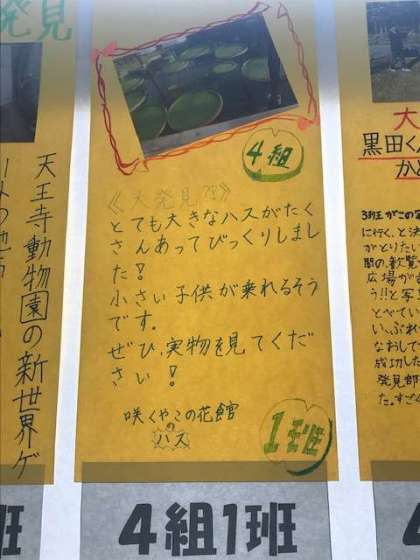 発見
天王寺動物園の新世界ゲ
4組
《大発見?》
とても大きなハスがたく
さんあってびっくりしまし
た!
小さい子供が乗れるそう
です。
ぜひ、実物を見てくだ
さい!
咲くやこの花館
の
ハス
1班
4組1班
班
大
黒田くん
3班がこの
に行く、と決
がとりたい
間の、歓覧
広場が
う!!と写
とべてい
い、ぶれ
なおして
成功した
発見部
た。すごく
4